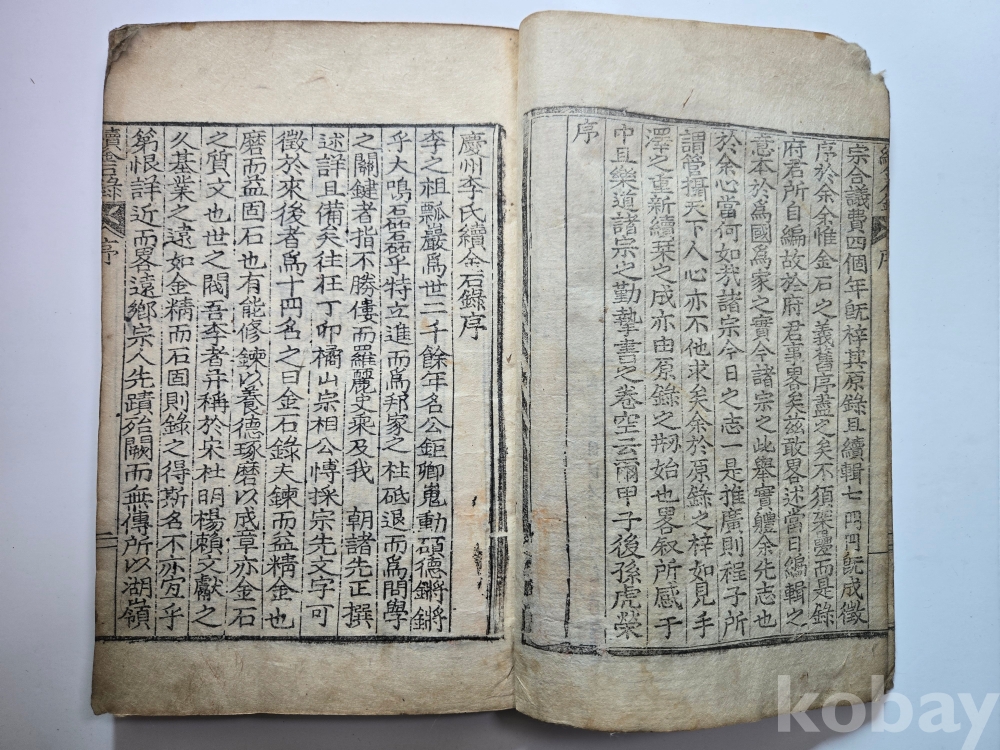 宗合議費四個年旣梓其原錄且續輯七冊旣成徵
序於余余惟金石之義舊序盡之矣不須架疊而是錄
府君所自編故於府君事畧矣玆敢畧述當日編輯之
意本於爲國爲家之實今諸宗之此舉實體余先志也
於余心當何如我諸宗今日之志一是推廣則程子所
謂管攝天下人心亦不他求矣余於原錄之梓如見手
澤之重新續栞之成亦由原錄之刱始也畧叙所感于
中且樂道諸宗之勤摯書之卷空云爾甲子後孫虎榮
序
慶州李氏續金石錄序
李之祖瓢巖爲世二千餘年名公鉅卿嵬勳碩德鏘鏘
乎大鳴磊磊乎特立進而爲邦家之柱砥退而爲問學
之關鍵者指不勝僂而羅麗史乘及我 朝諸先正撰
述詳且備矣往丁卯橘山宗相公愽採宗先文字可
徵於來後者爲十四名之曰金石錄夫鍊而益精金也
磨而益固石也有能修鍊以養德琢磨以成章亦金石
之質文也世之閥吾李者幷稱於宋杜明楊賴文獻之
久基業之遠如金精而石固則錄之得斯名不亦宜乎
第恨詳近而畧遠鄕宗人先蹟殆闕而無傳所以湖嶺
續金石錄 序
二